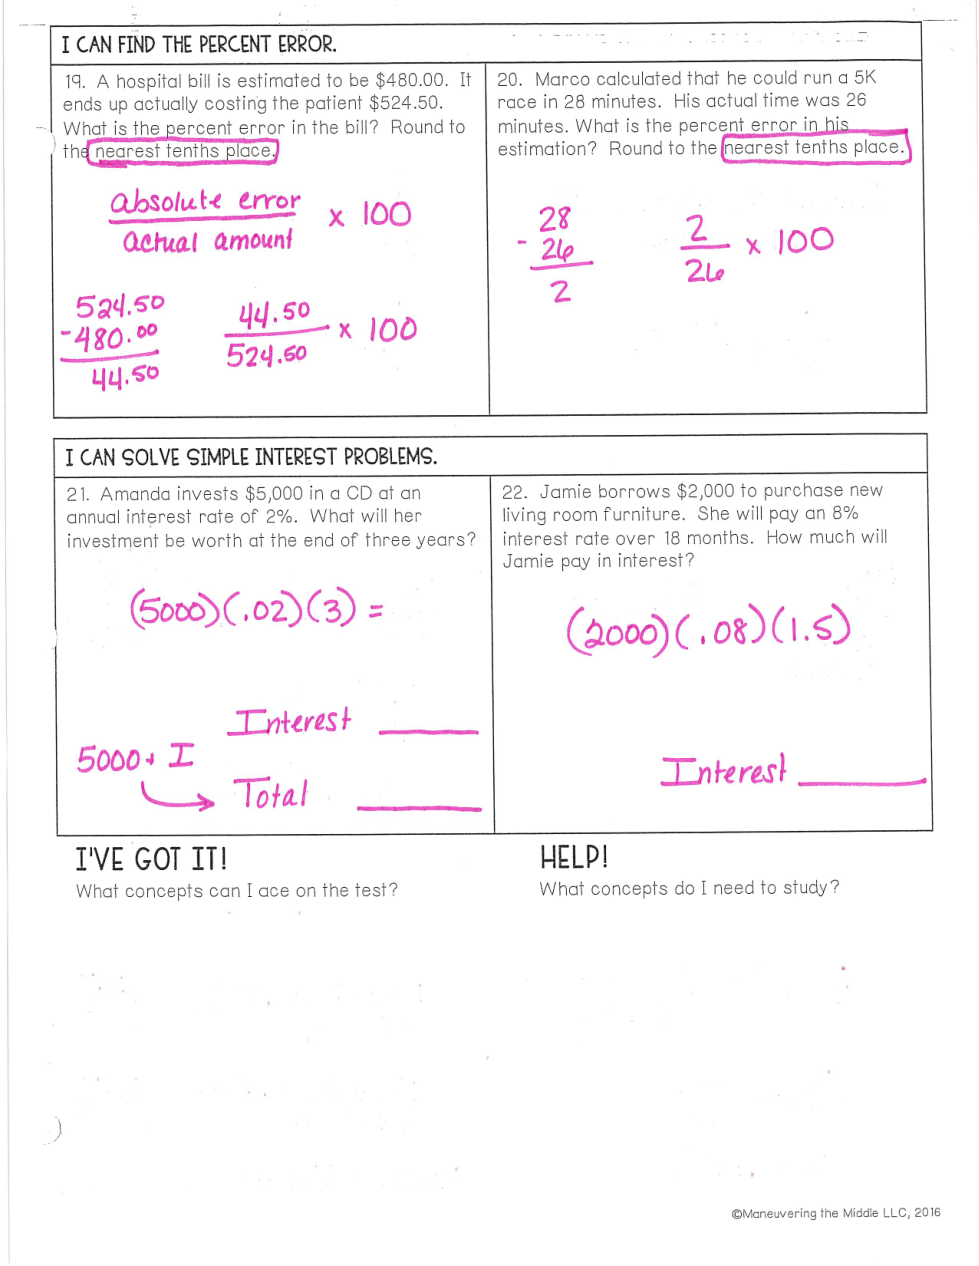 I CAN FIND THE PERCENT ERROR.
19. A hospital bill is estimated to be $480.00. It
ends up actually costing the patient $524.50.
What is the percent error in the bill? Round to
the nearest tenths place.
absolute error
actual amount
x 100
524.50
-480.00
44.50
44.50
524.50
x 100
20. Marco calculated that he could run a 5K
race in 28 minutes. His actual time was 26
minutes. What is the percent error in his
estimation? Round to the nearest tenths place.
28
- 26
2
2
26
x 100
I CAN SOLVE SIMPLE INTEREST PROBLEMS.
21. Amanda invests $5,000 in a CD at an
annual interest rate of 2%. What will her
investment be worth at the end of three years?
(5000)(.02)(3) =
Interest
5000 + I
Total
22. Jamie borrows $2,000 to purchase new
living room furniture. She will pay an 8%
interest rate over 18 months. How much will
Jamie pay in interest?
(2000)(.08)(1.5)
Interest
I'VE GOT IT!
What concepts can I ace on the test?
HELP!
What concepts do I need to study?
©Maneuvering the Middle LLC, 2016